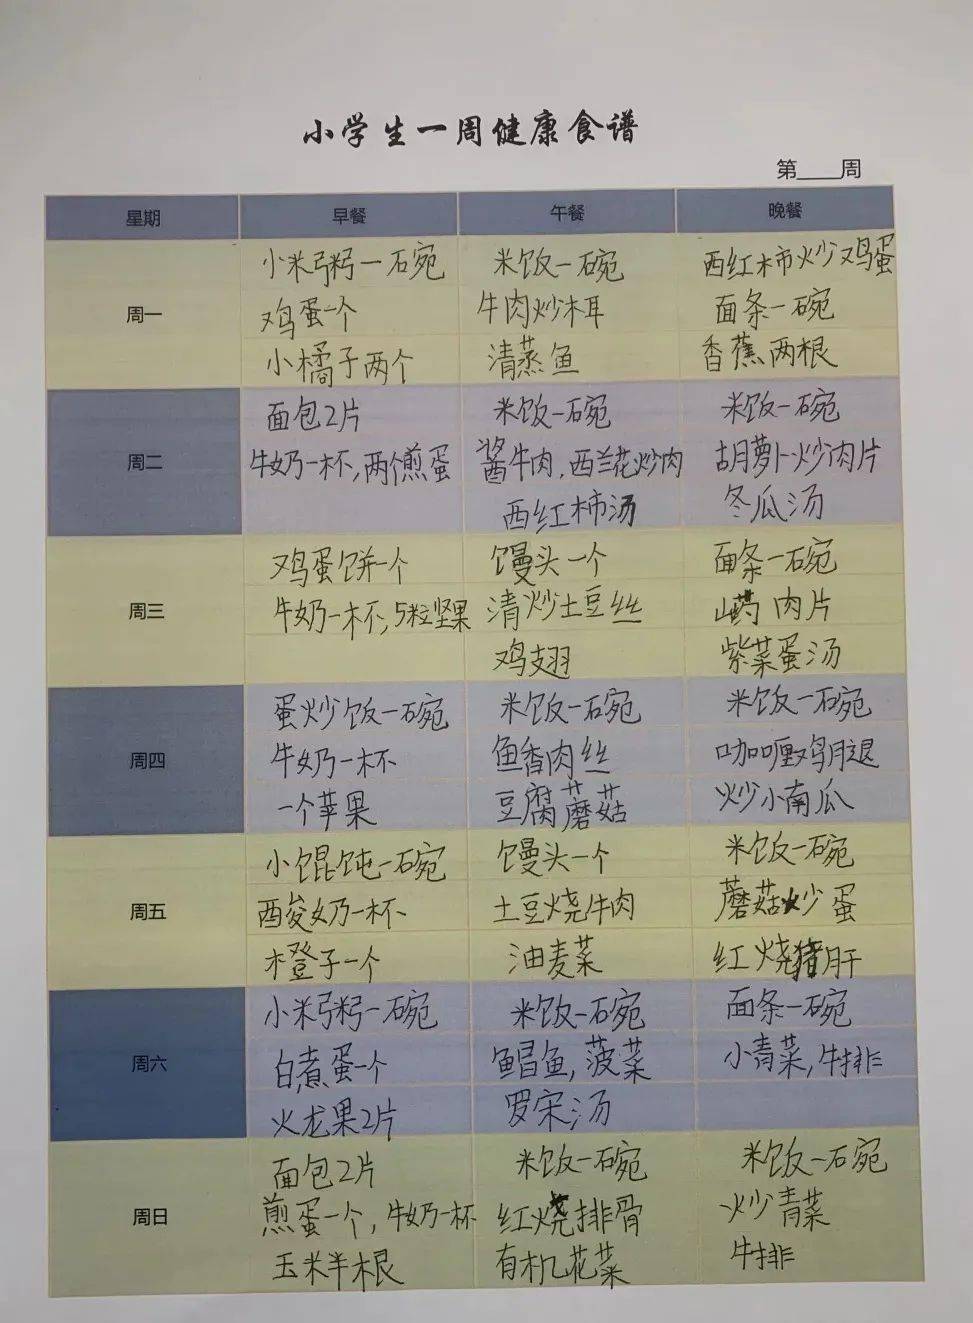 小学生一周健康食谱
第____周
星期 早餐 午餐 晚餐
周一
小米粥一碗
鸡蛋一个
小橘子两个
米饭一碗
牛肉炒木耳
清蒸鱼
西红柿炒鸡蛋
面条一碗
香蕉两根
周二
面包2片
牛奶一杯,两个煎蛋
米饭一碗
酱牛肉,西兰花炒肉
西红柿汤
米饭一碗
胡萝卜炒肉片
冬瓜汤
周三
鸡蛋饼一个
牛奶一杯,5粒坚果
馒头一个
清炒土豆丝
鸡翅
面条一碗
山药肉片
紫菜蛋汤
周四
蛋炒饭一碗
牛奶一杯
一个苹果
米饭一碗
鱼香肉丝
豆腐蘑菇
米饭一碗
咖喱鸡腿
炒小南瓜
周五
小馄饨一碗
酸奶一杯
橙子一个
馒头一个
土豆烧牛肉
油麦菜
米饭一碗
蘑菇炒蛋
红烧猪肝
周六
小米粥一碗
白煮蛋一个
火龙果2片
米饭一碗
鲳鱼,菠菜
罗宋汤
面条一碗
小青菜,牛排
周日
面包2片
煎蛋一个,牛奶一杯
玉米半根
米饭一碗
红烧排骨
有机花菜
米饭一碗
炒青菜
牛排